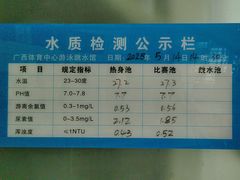 水质检测公示栏
广西体育中心游泳跳水馆 日期: 2025 5 14
项目 规定指标 热身池 比赛池 跳水池
水温 23-30度 27.2 27.3
PH值 7.0-7.8 7.7 7.7
游离余氯值 0.3-1mg/L 0.53 0.56
尿素值 0-3.5mg/L 2.12 1.85
浑浊度 ≤1NTU 0.43 0.52